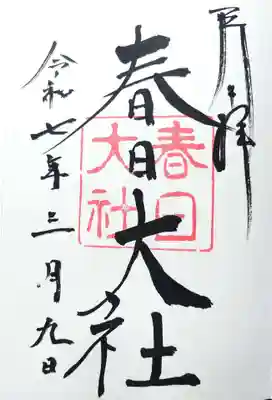 奉拝
春日大社
春日大社
令和七年三月九日